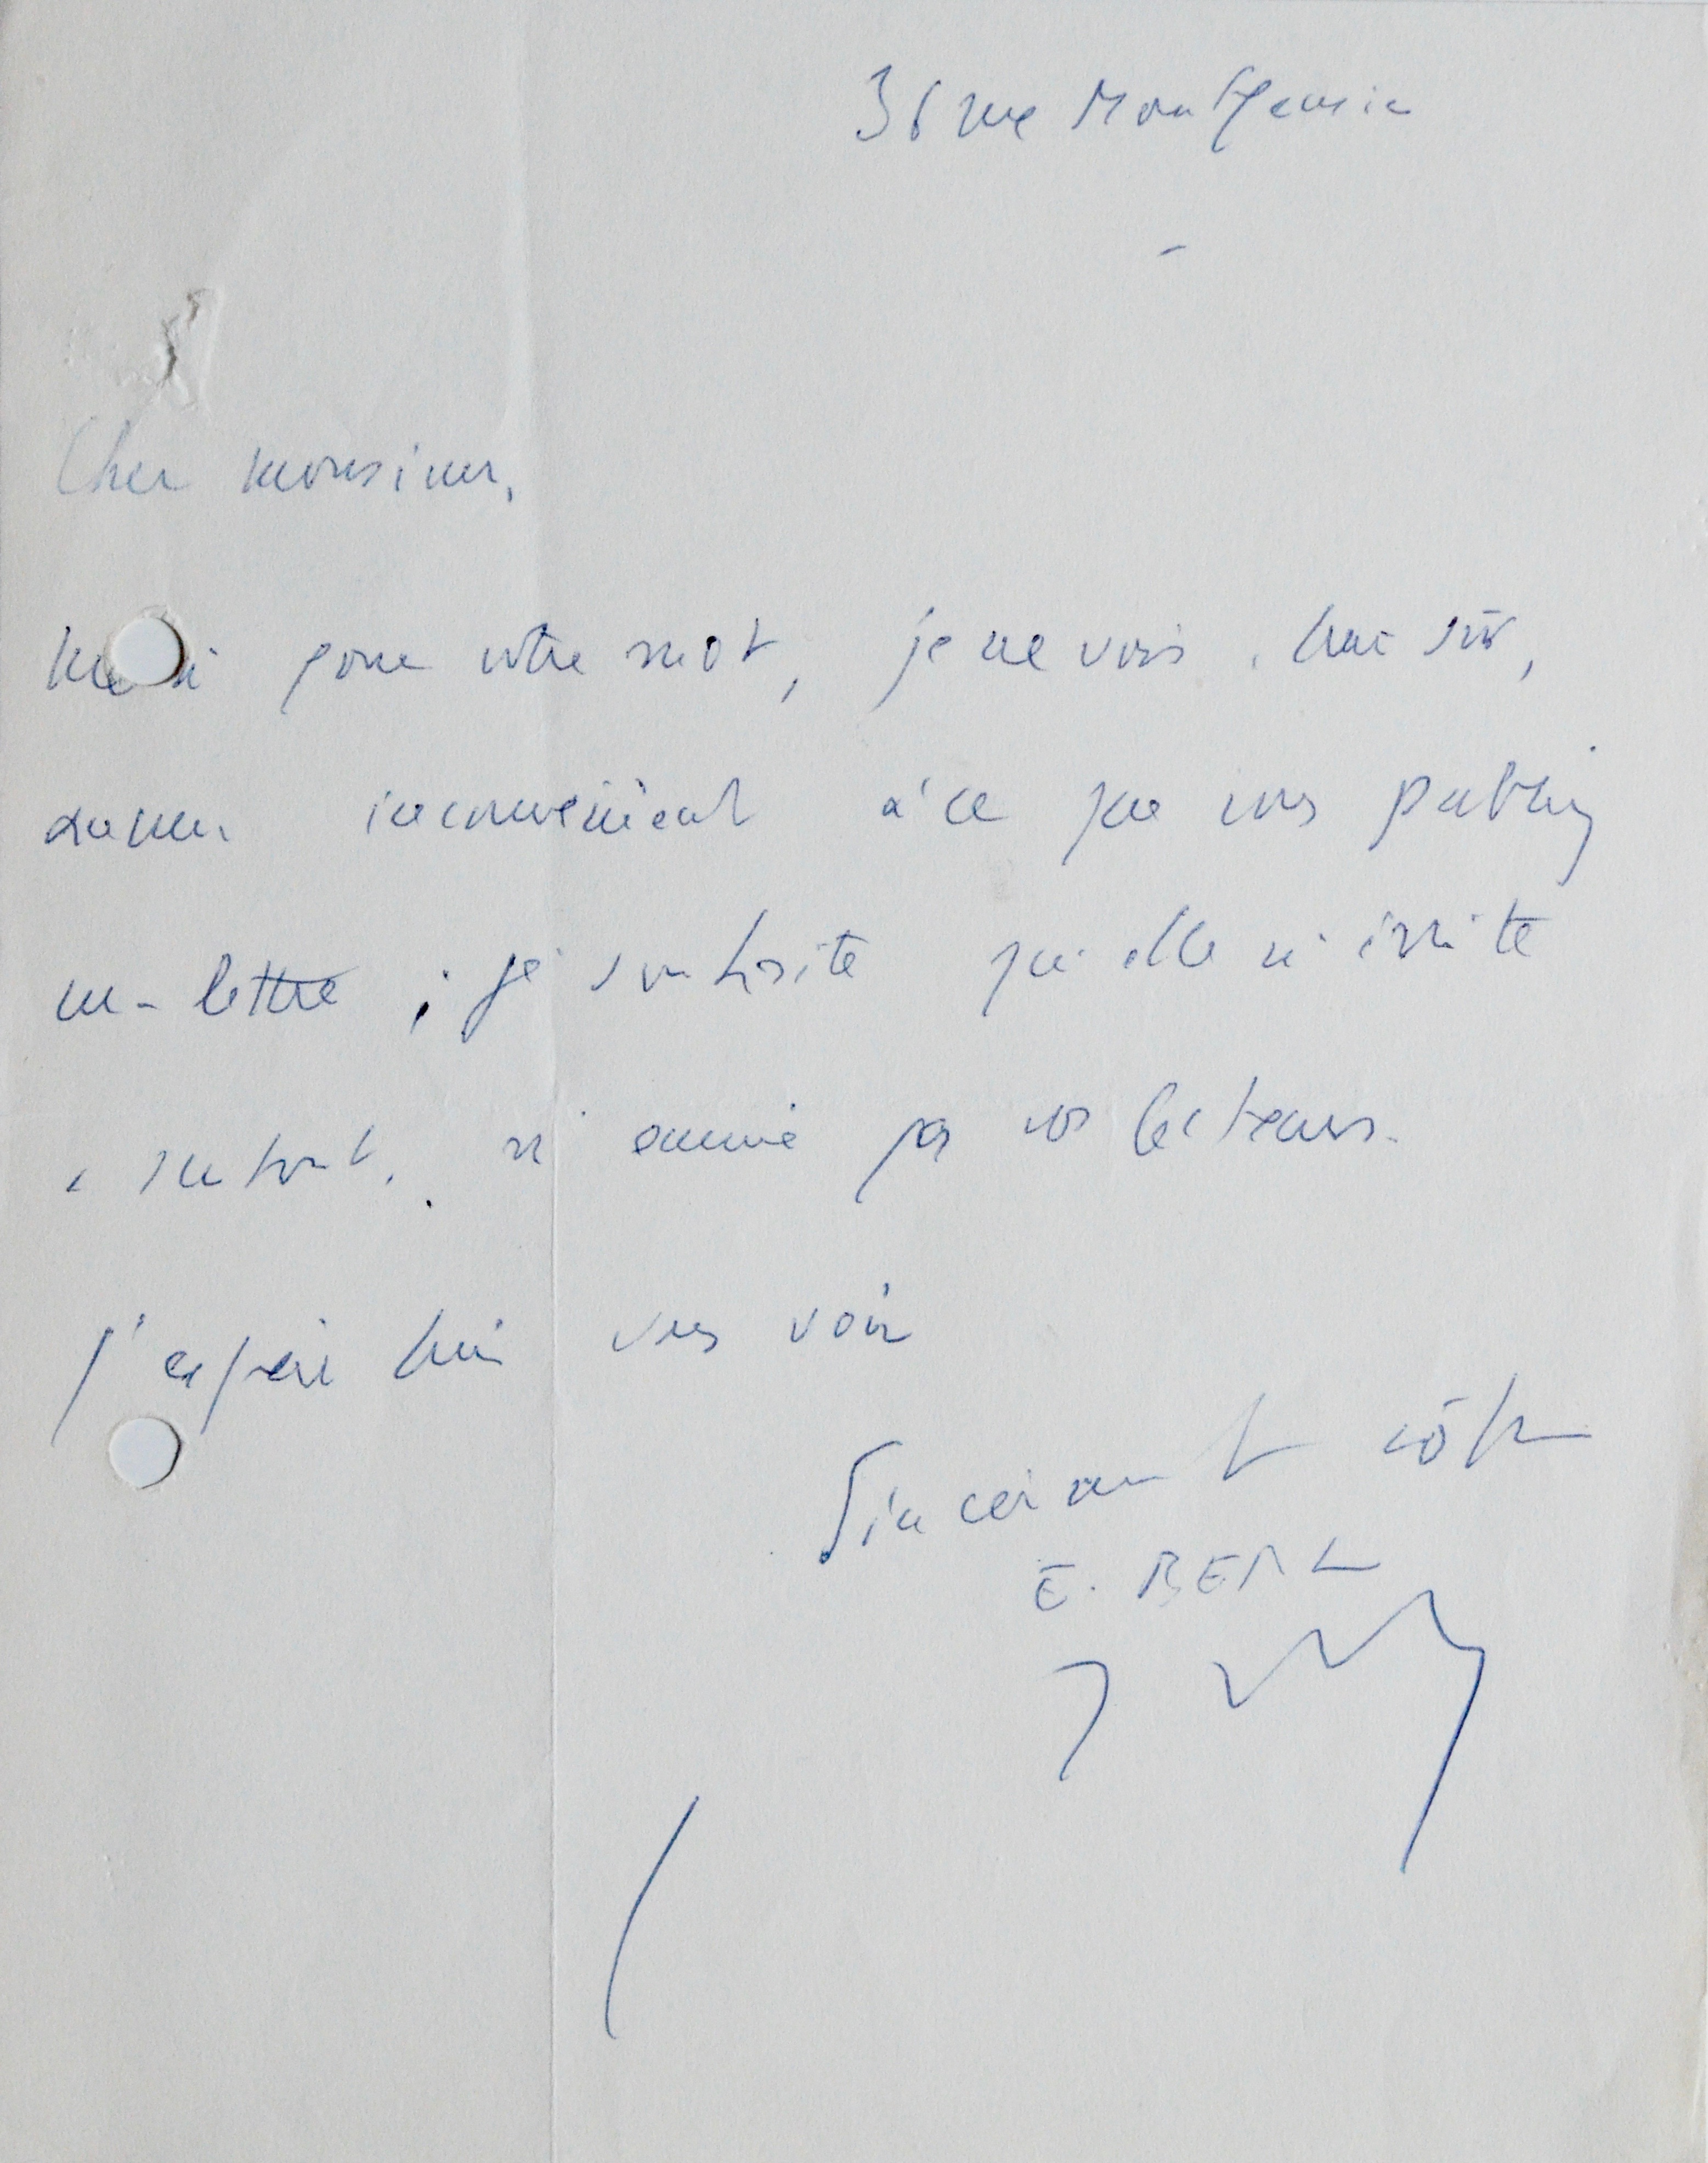 36 rue Montpensier
Cher monsieur,
Merci pour votre mot, je ne vois, bien sûr,
aucun inconvénient à ce que vous publiiez
ma lettre ; je souhaite qu'elle n'irrite
et surtout, n'ennuie pas vos lecteurs.
J'espère bien vous voir
Sincèrement vôtre
E. BERL